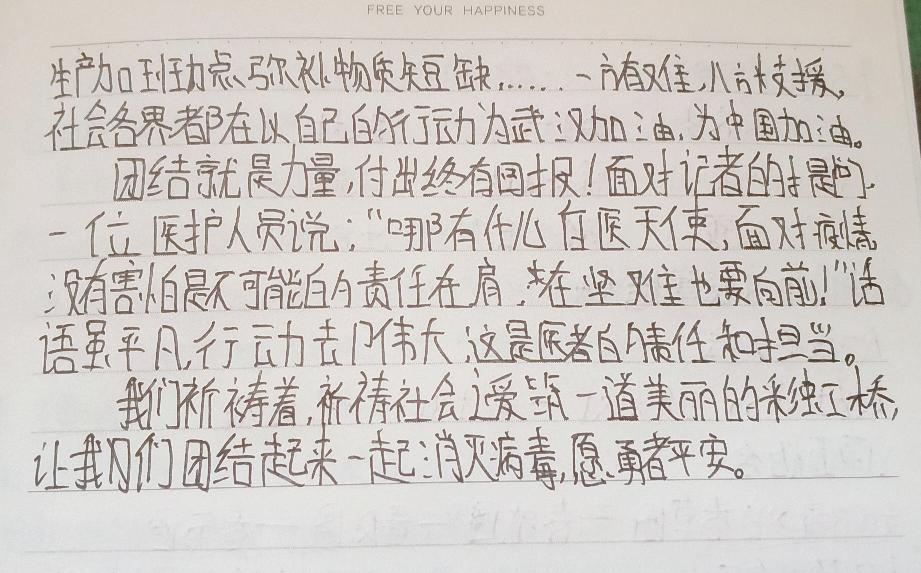 FREE YOUR HAPPINESS
生产加班加点弥补物质短缺……一方有难,八方支援,
社会各界者都在以自己的行动为武汉加油,为中国加油。
团结就是力量,付出终有回报!面对记者的提问,
一位医护人员说:“哪有什么白医天使,面对疫情,
没有害怕是不可能的责任在肩,在坚难也要向前!”话
语虽平凡,行动去伟大,这是医者的责任和担当。
我们祈祷着,祈祷社会爱筑一道美丽的彩虹桥,
让我们团结起来一起消灭病毒,愿勇者平安。